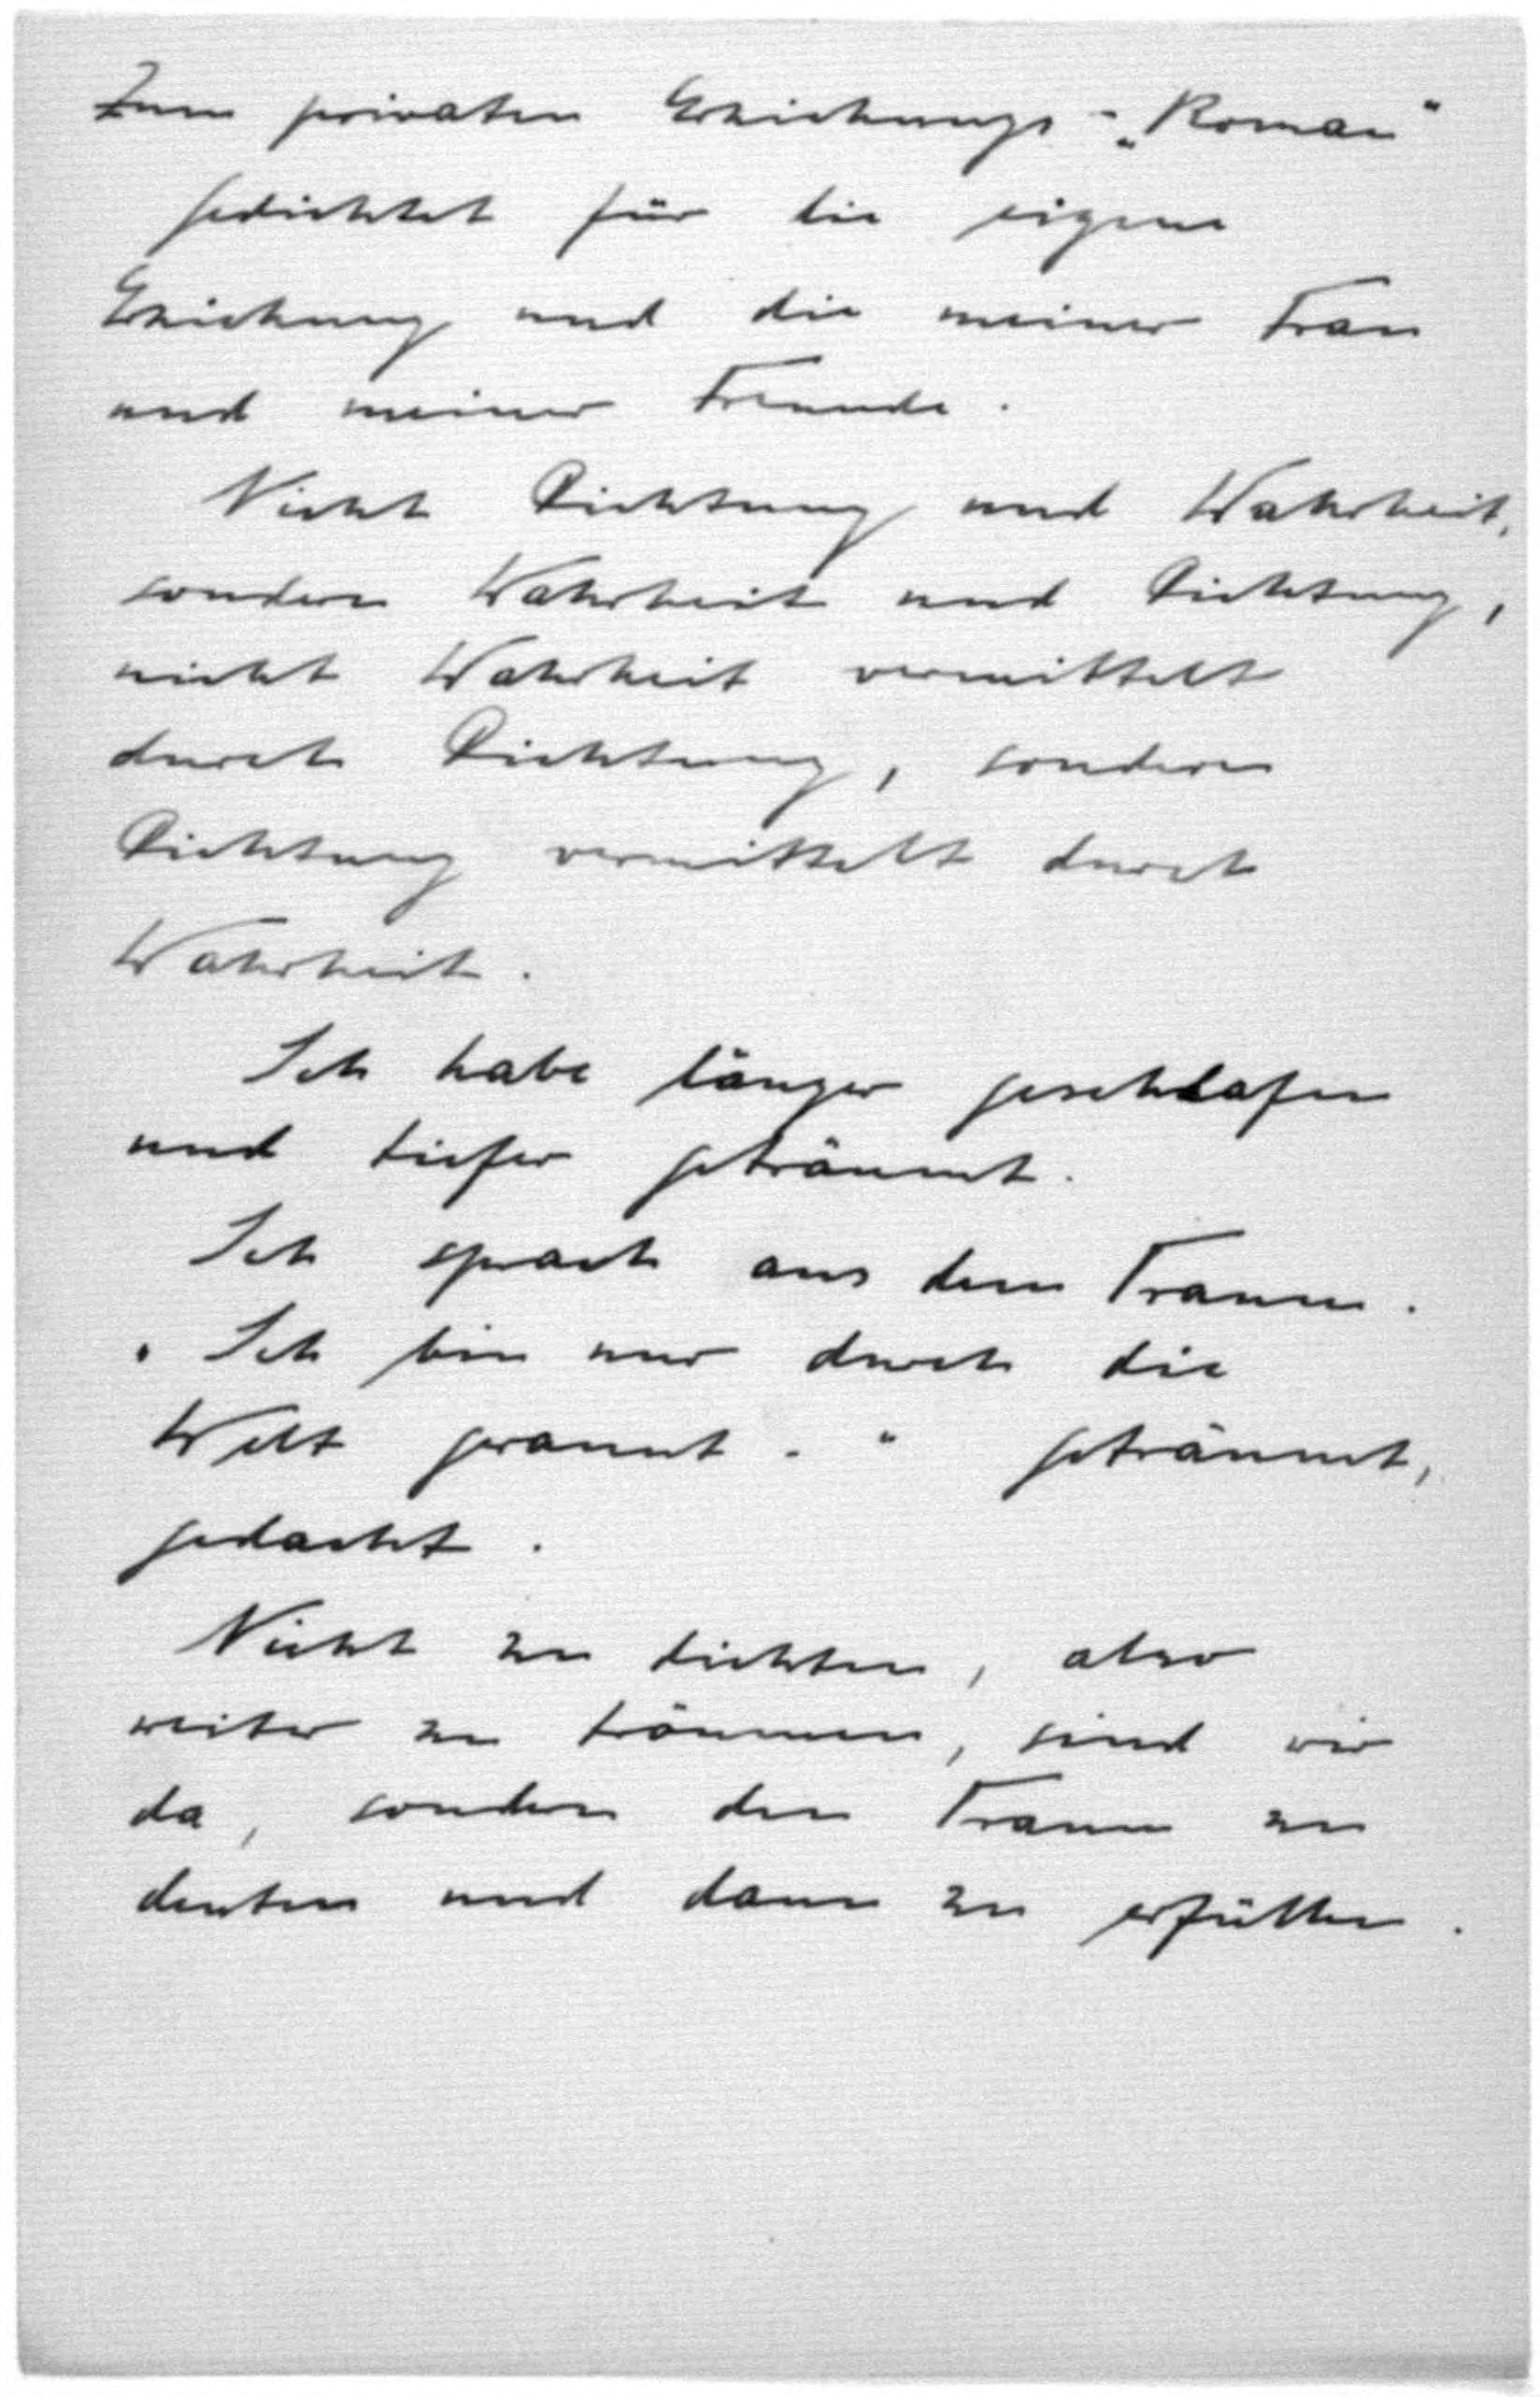 Zum privaten Erziehungs-„Roman"
gedichtet für die eigene
Erziehung und die meiner Frau
und meiner Freunde.
Nicht Dichtung und Wahrheit,
sondern Wahrheit und Dichtung,
nicht Wahrheit vermittelt
durch Dichtung, sondern
Dichtung vermittelt durch
Wahrheit.
Ich habe länger geschlafen
und tiefer geträumt.
Ich sprach aus dem Traum.
„Ich bin nur durch die
Welt gerannt." geträumt,
gedacht.
Nicht zu dichten, also
weiter zu träumen, sind wir
da, sondern den Traum zu
deuten und dann zu erfüllen.